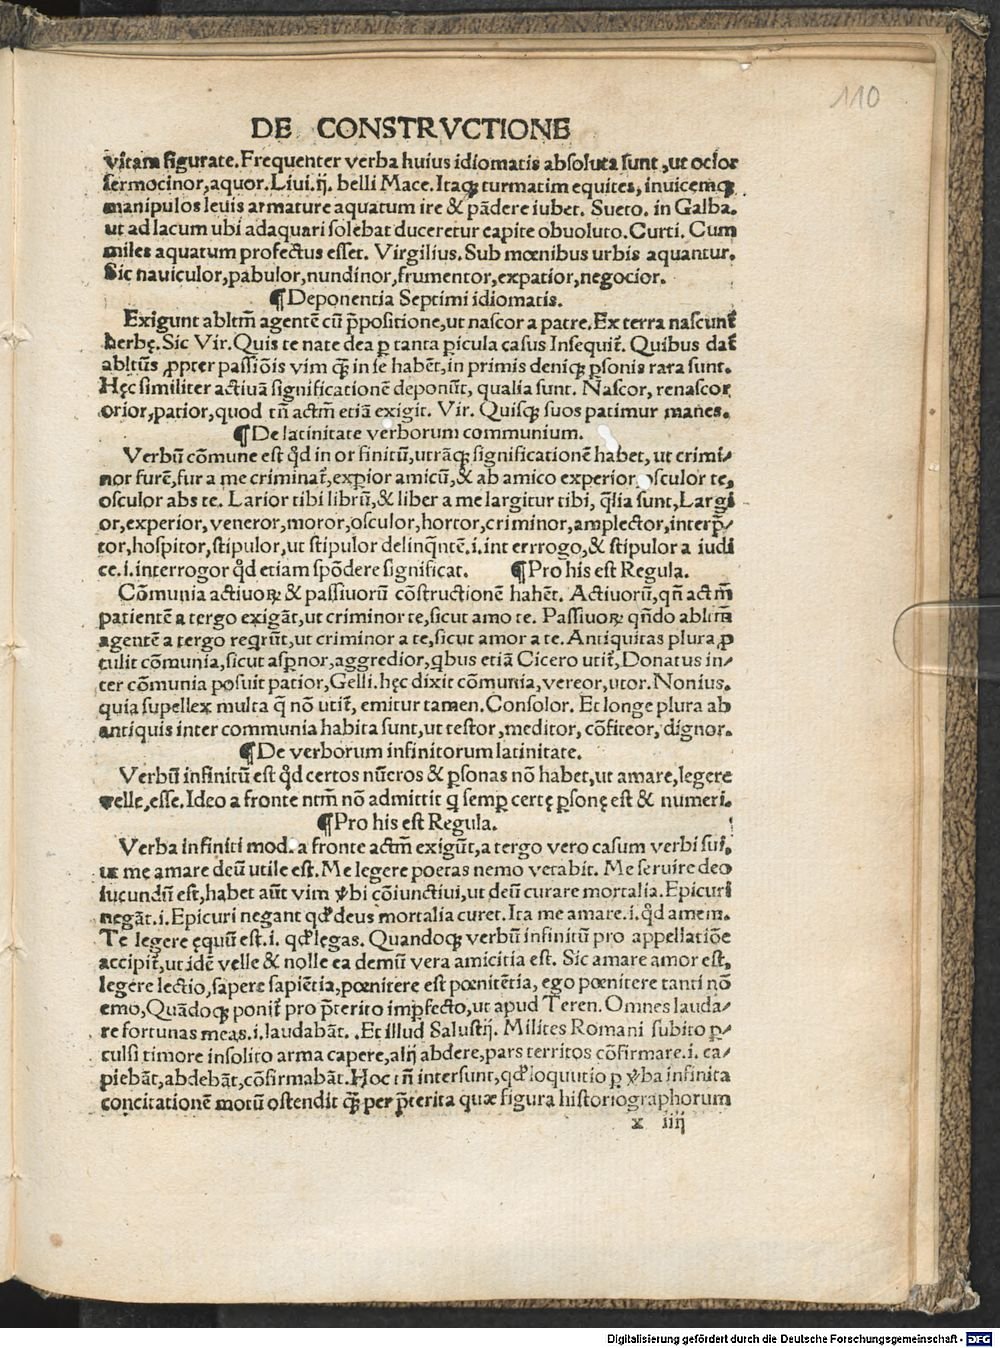 110
DE CONSTRVCTIONE
vitam figurate. Frequenter verba huius idiomatis absoluta sunt, ut ocior
sermocinor, aquor. Liui. ij. belli Mace. Itaqꝫ turmatim equites, inuicemqꝫ
manipulos leuis armature aquatum ire & pādere iubet. Sueto. in Galba.
ut ad lacum ubi adaquari solebat duceretur capite obuoluto. Curti. Cum
miles aquatum profectus esset. Virgilius. Sub mœnibus urbis aquantur.
Sic nauiculor, pabulor, nundinor, frumentor, expatior, negocior.
¶ Deponentia Septimi idiomatis.
Exigunt abltm̄ agentē cū p̄positione, ut nascor a patre. Ex terra nascunt̄
herbę. Sic Vir. Quis te nate dea ꝑ tanta ꝑicula casus Insequit̄. Quibus dat̄
abltūs ꝓpter passiōis vim qꝫ in se habēt, in primis deniqꝫ ꝑsonis rara sunt.
Hęc similiter actiuā significationē deponūt, qualia sunt. Nascor, renascor
orior, patior, quod tn̄ actm̄ etiā exigit. Vir. Quisqꝫ suos patimur manes.
¶ De latinitate verborum communium.
Verbū cōmune est qd̄ in or finitū, utrāqꝫ significationē habet, ut crimi⸗
nor furē, fur a me criminat̄, exꝑior amicū, & ab amico experior, osculor te,
osculor abs te. Larior tibi librū, & liber a me largitur tibi, q̄lia sunt, Largi
or, experior, veneror, moror, osculor, hortor, criminor, amplector, interp̄⸗
tor, hospitor, stipulor, ut stipulor delinq̄ntē .i. int errrogo, & stipulor a iudi
ce .i. interrogor qd̄ etiam spōdere significat. ¶ Pro his est Regula.
Cōmunia actiuoꝝ & passiuorū cōstructionē habēt. Actiuorū, qn̄ actm̄
patientē a tergo exigāt, ut criminor te, sicut amo te. Passiuoꝝ qn̄do abltm̄
agentē a tergo reqrūt, ut criminor a te, sicut amor a te. Antiquitas plura ꝓ
tulit cōmunia, sicut asꝑnor, aggredior, qbus etiā Cicero utit̄, Donatus in⸗
ter cōmunia posuit patior, Gelli. hęc dixit cōmunia, vereor, utor. Nonius.
quia supellex multa q̄ nō utit̄, emitur tamen. Consolor. Et longe plura ab
antiquis inter communia habita sunt, ut testor, meditor, cōfiteor, dignor.
¶ De verborum infinitorum latinitate.
Verbū infinitū est qd̄ certos nūeros & ꝑsonas nō habet, ut amare, legere
velle, esse. Ideo a fronte ntm̄ nō admittit q semꝑ certę ꝑsonę est & numeri.
¶ Pro his est Regula.
Verba infiniti mod. a fronte actm̄ exigūt, a tergo vero casum verbi sui,
ut me amare deū utile est. Me legere poetas nemo vetabit. Me seruire deo
iucundū est, habet aūt vim v̄bi cōiunctiui, ut deū curare mortalia. Epicuri
negāt .i. Epicuri negant qd̄ deus mortalia curet. Ita me amare .i. qd̄ amem.
Te legere ęquū est .i. qd̄ lęgas. Quandoqꝫ verbū infinitū pro appellatiōe
accipit̄, ut idē velle & nolle ea demū vera amicitia est. Sic amare amor est,
legere lectio, sapere sapiētia, pœnitere est pœnitētia, ego pœnitere tanti nō
emo, Quādoqꝫ ponit̄ pro p̄terito imꝑfecto, ut apud Teren. Omnes lauda⸗
re fortunas meas .i. laudabāt. Et illud Salustij. Milites Romani subito ꝑ⸗
culsi timore insolito arma capere, alij abdere, pars territos cōfirmare .i. ca⸗
piebāt, abdebāt, cōfirmabāt. Hoc tn̄ intersunt, qd̄ loquutio ꝑ v̄ba infinita
concitationē motū ostendit qꝫ per p̄terita quæ figura historiographorum
x iiij
Digitalisierung gefördert durch die Deutsche Forschungsgemeinschaft - DFG